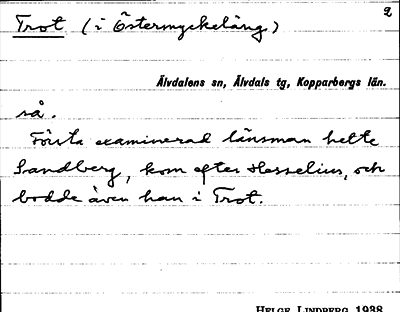 2
Trot (i Östermyckeläng)
Älvdalens sn, Älvdals tg, Kopparbergs län.
så.
Första examinerad länsman hette
Sandberg, kom efter Hesselius, och
bodde även han i Trot.
HELGE LINDBERG 1938